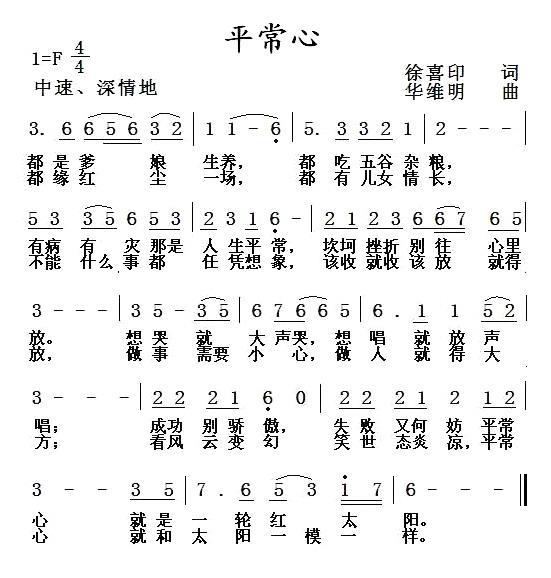 平常心
1=F 4/4
徐喜印 词
中速、深情地
华维明 曲
3. 6 6 5 6 3 2 | 1 1 - 6 | 5. 3 3 2 1 | 2 - - - |
都是爹 娘 生养, 都 吃五谷杂粮,
都缘红 尘 一场, 都 有儿女情长,
5 3 3 5 6 5 3 | 2 3 1 6 - | 2 1 2 3 2 6 6 7 6 5 |
有病有 灾那是 人生平常, 坎坷挫折别往 心里
不能什么事都 任凭想象, 该收就收该放 就得
3 - - - | 3 5 - 3 5 | 6 7 6 6 5 | 6 . 1 1 5 2 |
放。 想哭 就 大声哭, 想 唱 就放声
放, 做事 需要 小 心, 做 人 就得大
3 - - - | 2 2 2 1 6 0 | 2 2 2 1 2 2 2 |
唱; 成功别骄傲, 失败又何妨 平常
方; 看风云变幻 笑世态炎凉, 平常
3 - - 3 5 | 7 . 6 5 3 1 7 | 6 - - - ‖
心 就是一轮红 太 阳。
心 就和太阳一模一 样。